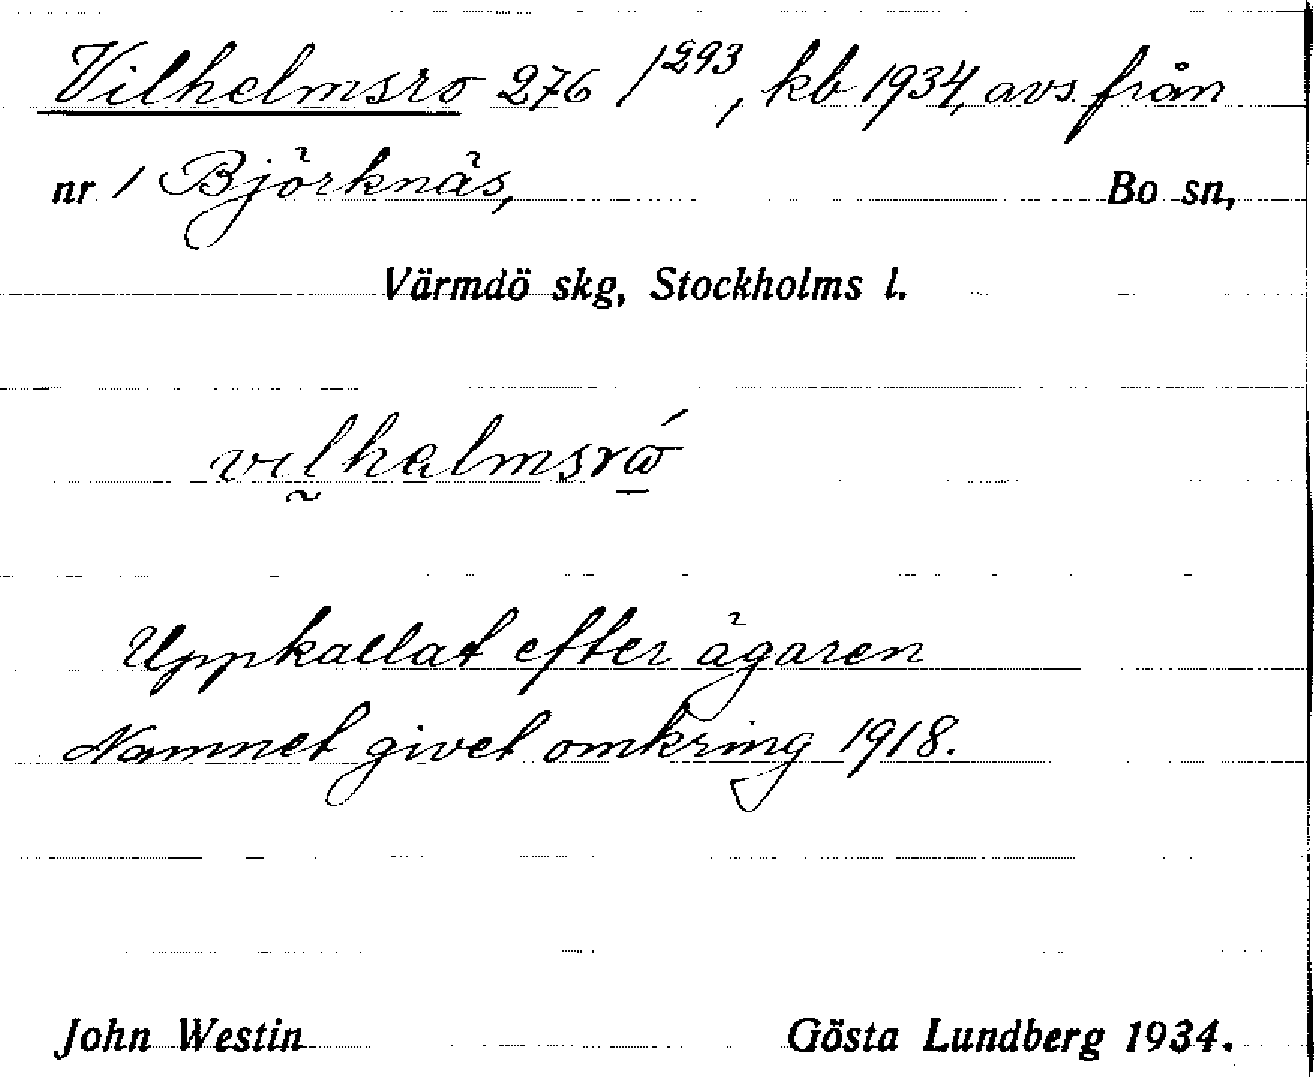 Vilhelmsro 276 /293, kb 1934, avs. från
nr 1 Björknäs, Bo sn,
Värmdö skg, Stockholms l.
Uppkallat efter ägaren
Namnet givet omkring 1918.
John Westin Gösta Lundberg 1934.